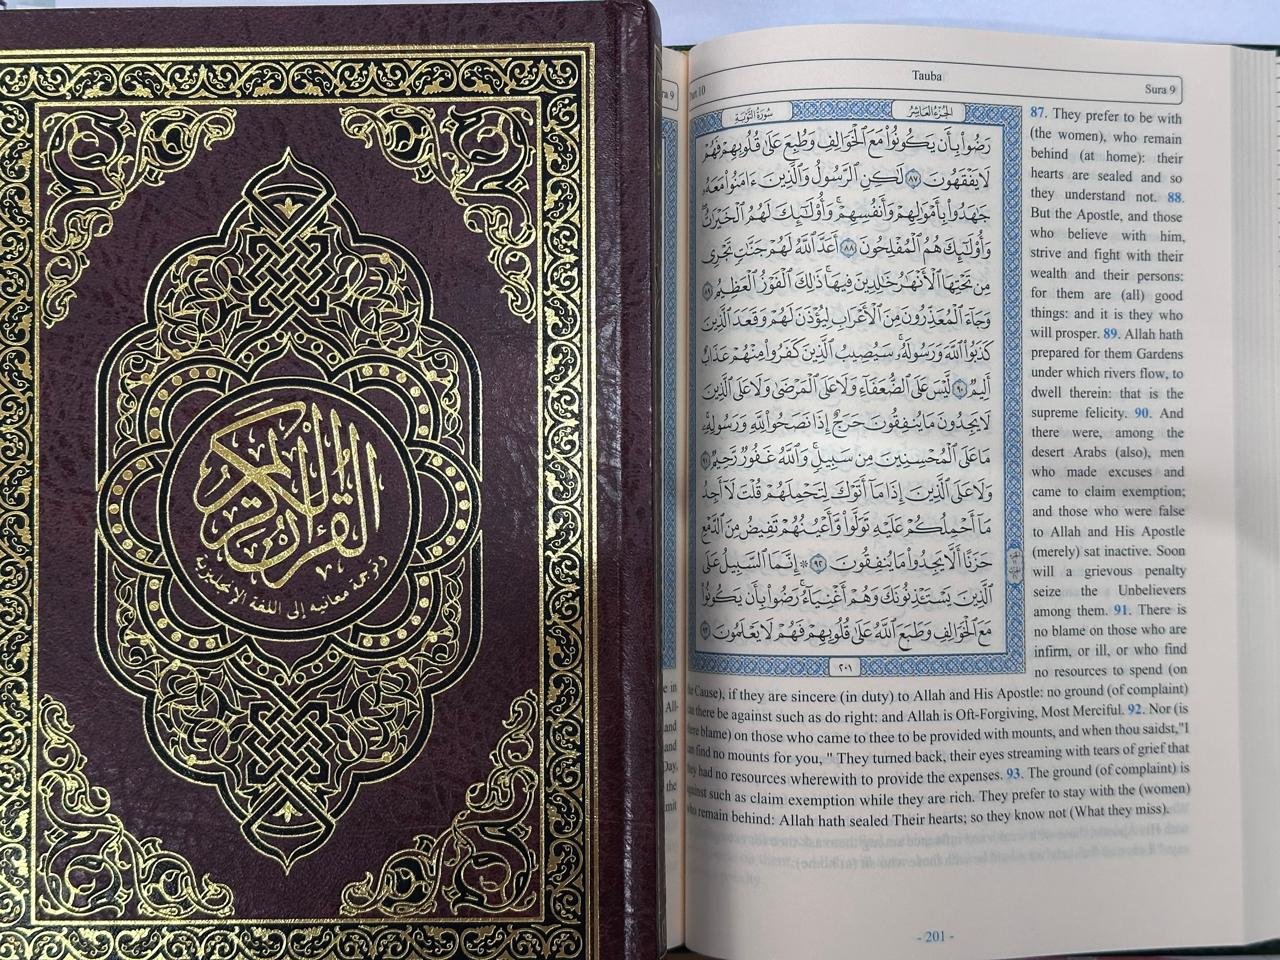 القرآن الكريم
وترجمة معانيه إلى اللغة الإنجليزية
Part 10
Tauba
Sura 9
سُورَةُ التَّوْبَةِ
الجُزْءُ العَاشِرُ
رَضُوا۟ بِأَن يَكُونُوا۟ مَعَ ٱلْخَوَالِفِ وَطُبِعَ عَلَىٰ قُلُوبِهِمْ فَهُمْ
لَا يَفْقَهُونَ ٨٧ لَٰكِنِ ٱلرَّسُولُ وَٱلَّذِينَ ءَامَنُوا۟ مَعَهُۥ
جَٰهَدُوا۟ بِأَمْوَٰلِهِمْ وَأَنفُسِهِمْ ۚ وَأُو۟لَٰٓئِكَ لَهُمُ ٱلْخَيْرَٰتُ ۖ
وَأُو۟لَٰٓئِكَ هُمُ ٱلْمُفْلِحُونَ ٨٨ أَعَدَّ ٱللَّهُ لَهُمْ جَنَّٰتٍ تَجْرِى
مِن تَحْتِهَا ٱلْأَنْهَٰرُ خَٰلِدِينَ فِيهَا ۚ ذَٰلِكَ ٱلْفَوْزُ ٱلْعَظِيمُ ٨٩
وَجَآءَ ٱلْمُعَذِّرُونَ مِنَ ٱلْأَعْرَابِ لِيُؤْذَنَ لَهُمْ وَقَعَدَ ٱلَّذِينَ
كَذَبُوا۟ ٱللَّهَ وَرَسُولَهُۥ ۚ سَيُصِيبُ ٱلَّذِينَ كَفَرُوا۟ مِنْهُمْ عَذَابٌ
أَلِيمٌ ٩٠ لَّيْسَ عَلَى ٱلضُّعَفَآءِ وَلَا عَلَى ٱلْمَرْضَىٰ وَلَا عَلَى ٱلَّذِينَ
لَا يَجِدُونَ مَا يُنفِقُونَ حَرَجٌ إِذَا نَصَحُوا۟ لِلَّهِ وَرَسُولِهِۦ ۚ
مَا عَلَى ٱلْمُحْسِنِينَ مِن سَبِيلٍ ۚ وَٱللَّهُ غَفُورٌ رَّحِيمٌ ٩١
وَلَا عَلَى ٱلَّذِينَ إِذَا مَآ أَتَوْكَ لِتَحْمِلَهُمْ قُلْتَ لَآ أَجِدُ
مَآ أَحْمِلُكُمْ عَلَيْهِ تَوَلَّوا۟ وَّأَعْيُنُهُمْ تَفِيضُ مِنَ ٱلدَّمْعِ
حَزَنًا أَلَّا يَجِدُوا۟ مَا يُنفِقُونَ ٩٢ ۞ إِنَّمَا ٱلسَّبِيلُ عَلَى
ٱلَّذِينَ يَسْتَـْٔذِنُونَكَ وَهُمْ أَغْنِيَآءُ ۚ رَضُوا۟ بِأَن يَكُونُوا۟
مَعَ ٱلْخَوَالِفِ وَطَبَعَ ٱللَّهُ عَلَىٰ قُلُوبِهِمْ فَهُمْ لَا يَعْلَمُونَ ٩٣
٢٠١
87. They prefer to be with
(the women), who remain
behind (at home): their
hearts are sealed and so
they understand not. 88.
But the Apostle, and those
who believe with him,
strive and fight with their
wealth and their persons:
for them are (all) good
things: and it is they who
will prosper. 89. Allah hath
prepared for them Gardens
under which rivers flow, to
dwell therein: that is the
supreme felicity. 90. And
there were, among the
desert Arabs (also), men
who made excuses and
came to claim exemption;
and those who were false
to Allah and His Apostle
(merely) sat inactive. Soon
will a grievous penalty
seize the Unbelievers
among them. 91. There is
no blame on those who are
infirm, or ill, or who find
no resources to spend (on
the Cause), if they are sincere (in duty) to Allah and His Apostle: no ground (of complaint)
can there be against such as do right: and Allah is Oft-Forgiving, Most Merciful. 92. Nor (is
there blame) on those who came to thee to be provided with mounts, and when thou saidst,"I
can find no mounts for you, " They turned back, their eyes streaming with tears of grief that
they had no resources wherewith to provide the expenses. 93. The ground (of complaint) is
against such as claim exemption while they are rich. They prefer to stay with the (women)
who remain behind: Allah hath sealed Their hearts; so they know not (What they miss).
- 201 -